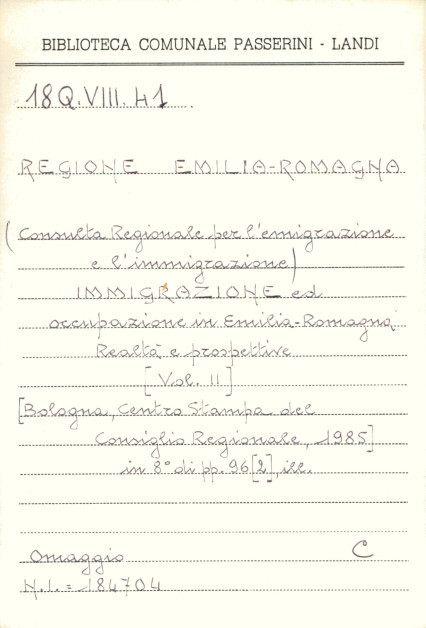 BIBLIOTECA COMUNALE PASSERINI - LANDI
18Q.VIII.41
REGIONE EMILIA-ROMAGNA
(Consulta Regionale per l'emigrazione
e l'immigrazione)
IMMIGRAZIONE ed
occupazione in Emilia-Romagna
Realtà e prospettive
[Vol. II]
[Bologna, Centro Stampa del
Consiglio Regionale, 1985]
in 8° di pp. 96[2], ill.
Omaggio C
N.I. = 184704